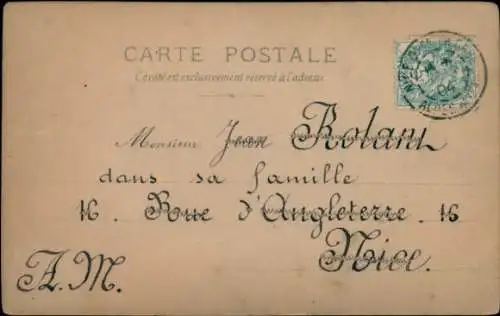 CARTE POSTALE
Ce côté est exclusivement réservé à l'adresse
Monsieur Jean Rolant
dans sa famille
16. Rue d'Angleterre. 16
Nice.
A.M.
04